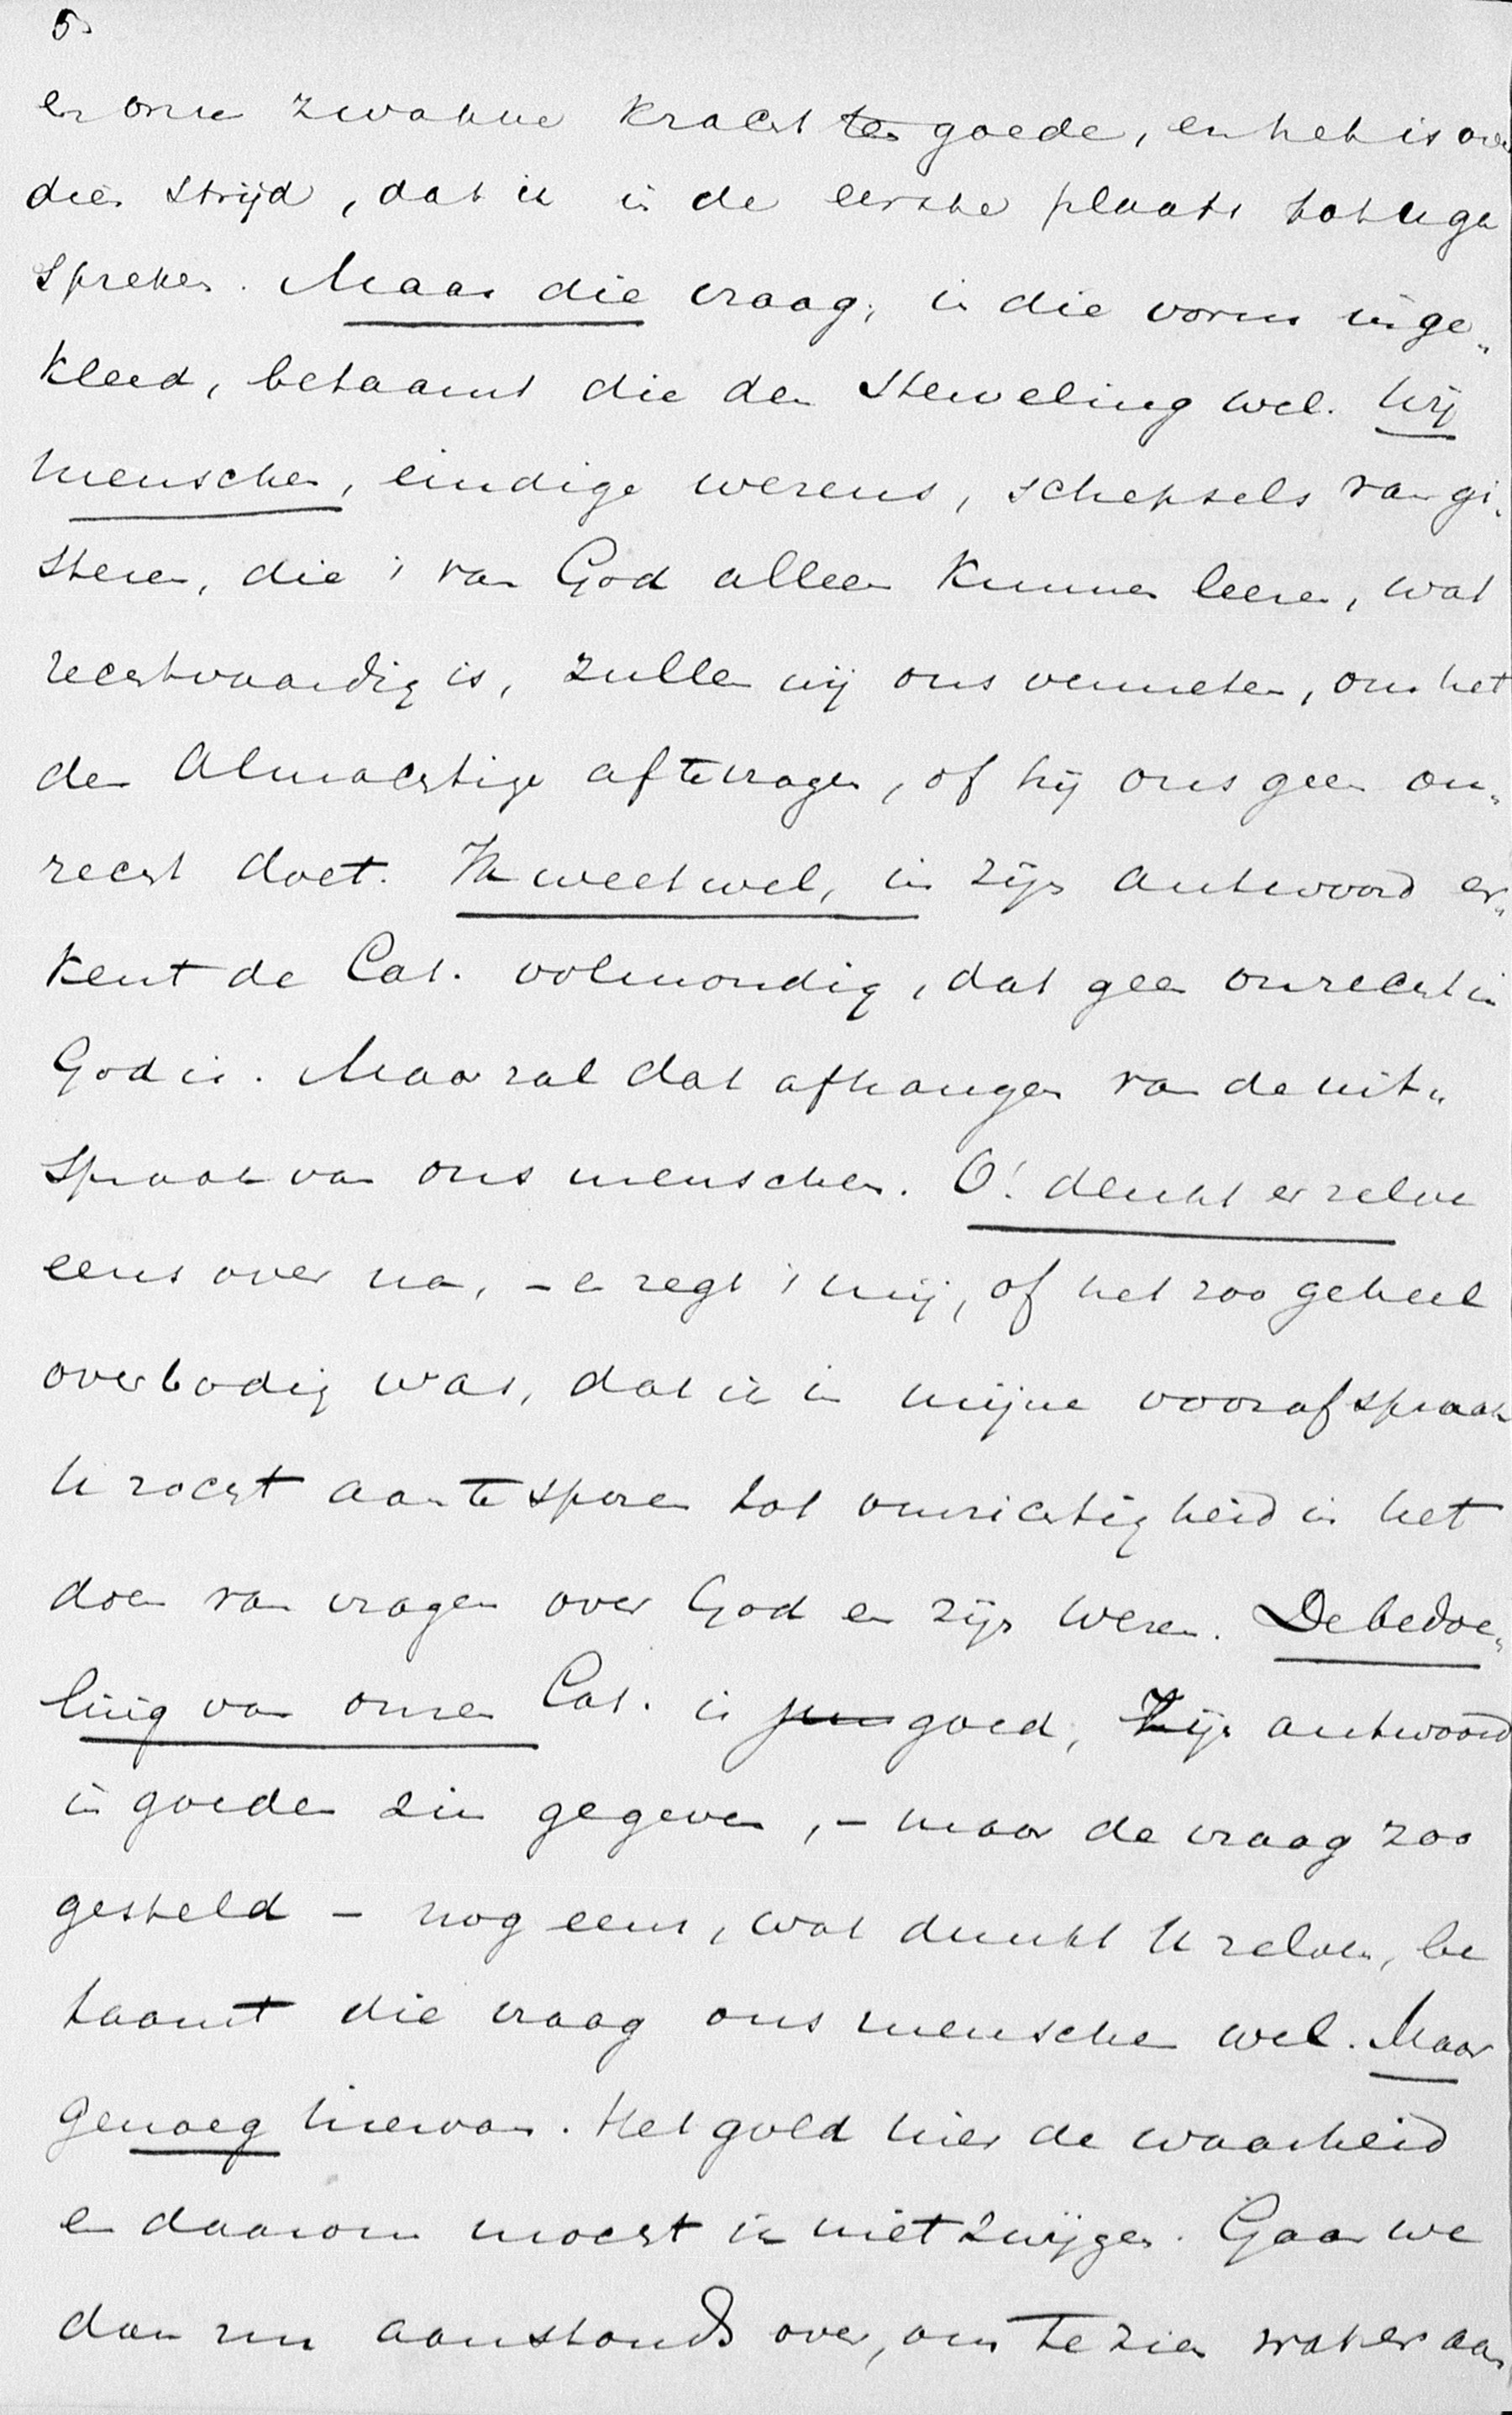 5
en onze zwakke kracht ten goede, en het is over
dien strijd, dat ik in de eerste plaats tot u ga
spreken. Maar die vraag, in die vorm inge„
kleed, betaamt die den sterveling wel. Wij
menschen, eindige wezens, schepsels van gi„
steren, die 't van God alleen kunnen leeren, wat
rechtvaardig is, zullen wij ons vermeten, om het
den Almachtige aftevragen, of hij ons geen on„
recht doet. Ik weet wel, in zijn antwoord er„
kent de Cat. volmondig, dat geen onrecht in
God is. Maar zal dat afhangen van de uit„
spraak van ons menschen. O! denkt er zelve
eens over na, – en zegt 't mij, of het zoo geheel
overbodig was, dat ik in mijne voorafspraak
U zocht aan te sporen tot omzichtigheid in het
doen van vragen over God en zijn Wezen. De bedoe„
ling van onzen Cat. is goed, Zijn antwoord
in goeden zin gegeven, – maar de vraag zoo
gesteld – nog eens, wat dunkt U zelven, be
taamt die vraag ons menschen wel. Maar
genoeg hiervan. Het gold hier de waarheid
en daarom mocht ik niet zwijgen. Gaan we
dan nu aanstonds over, om te zien wat er aan